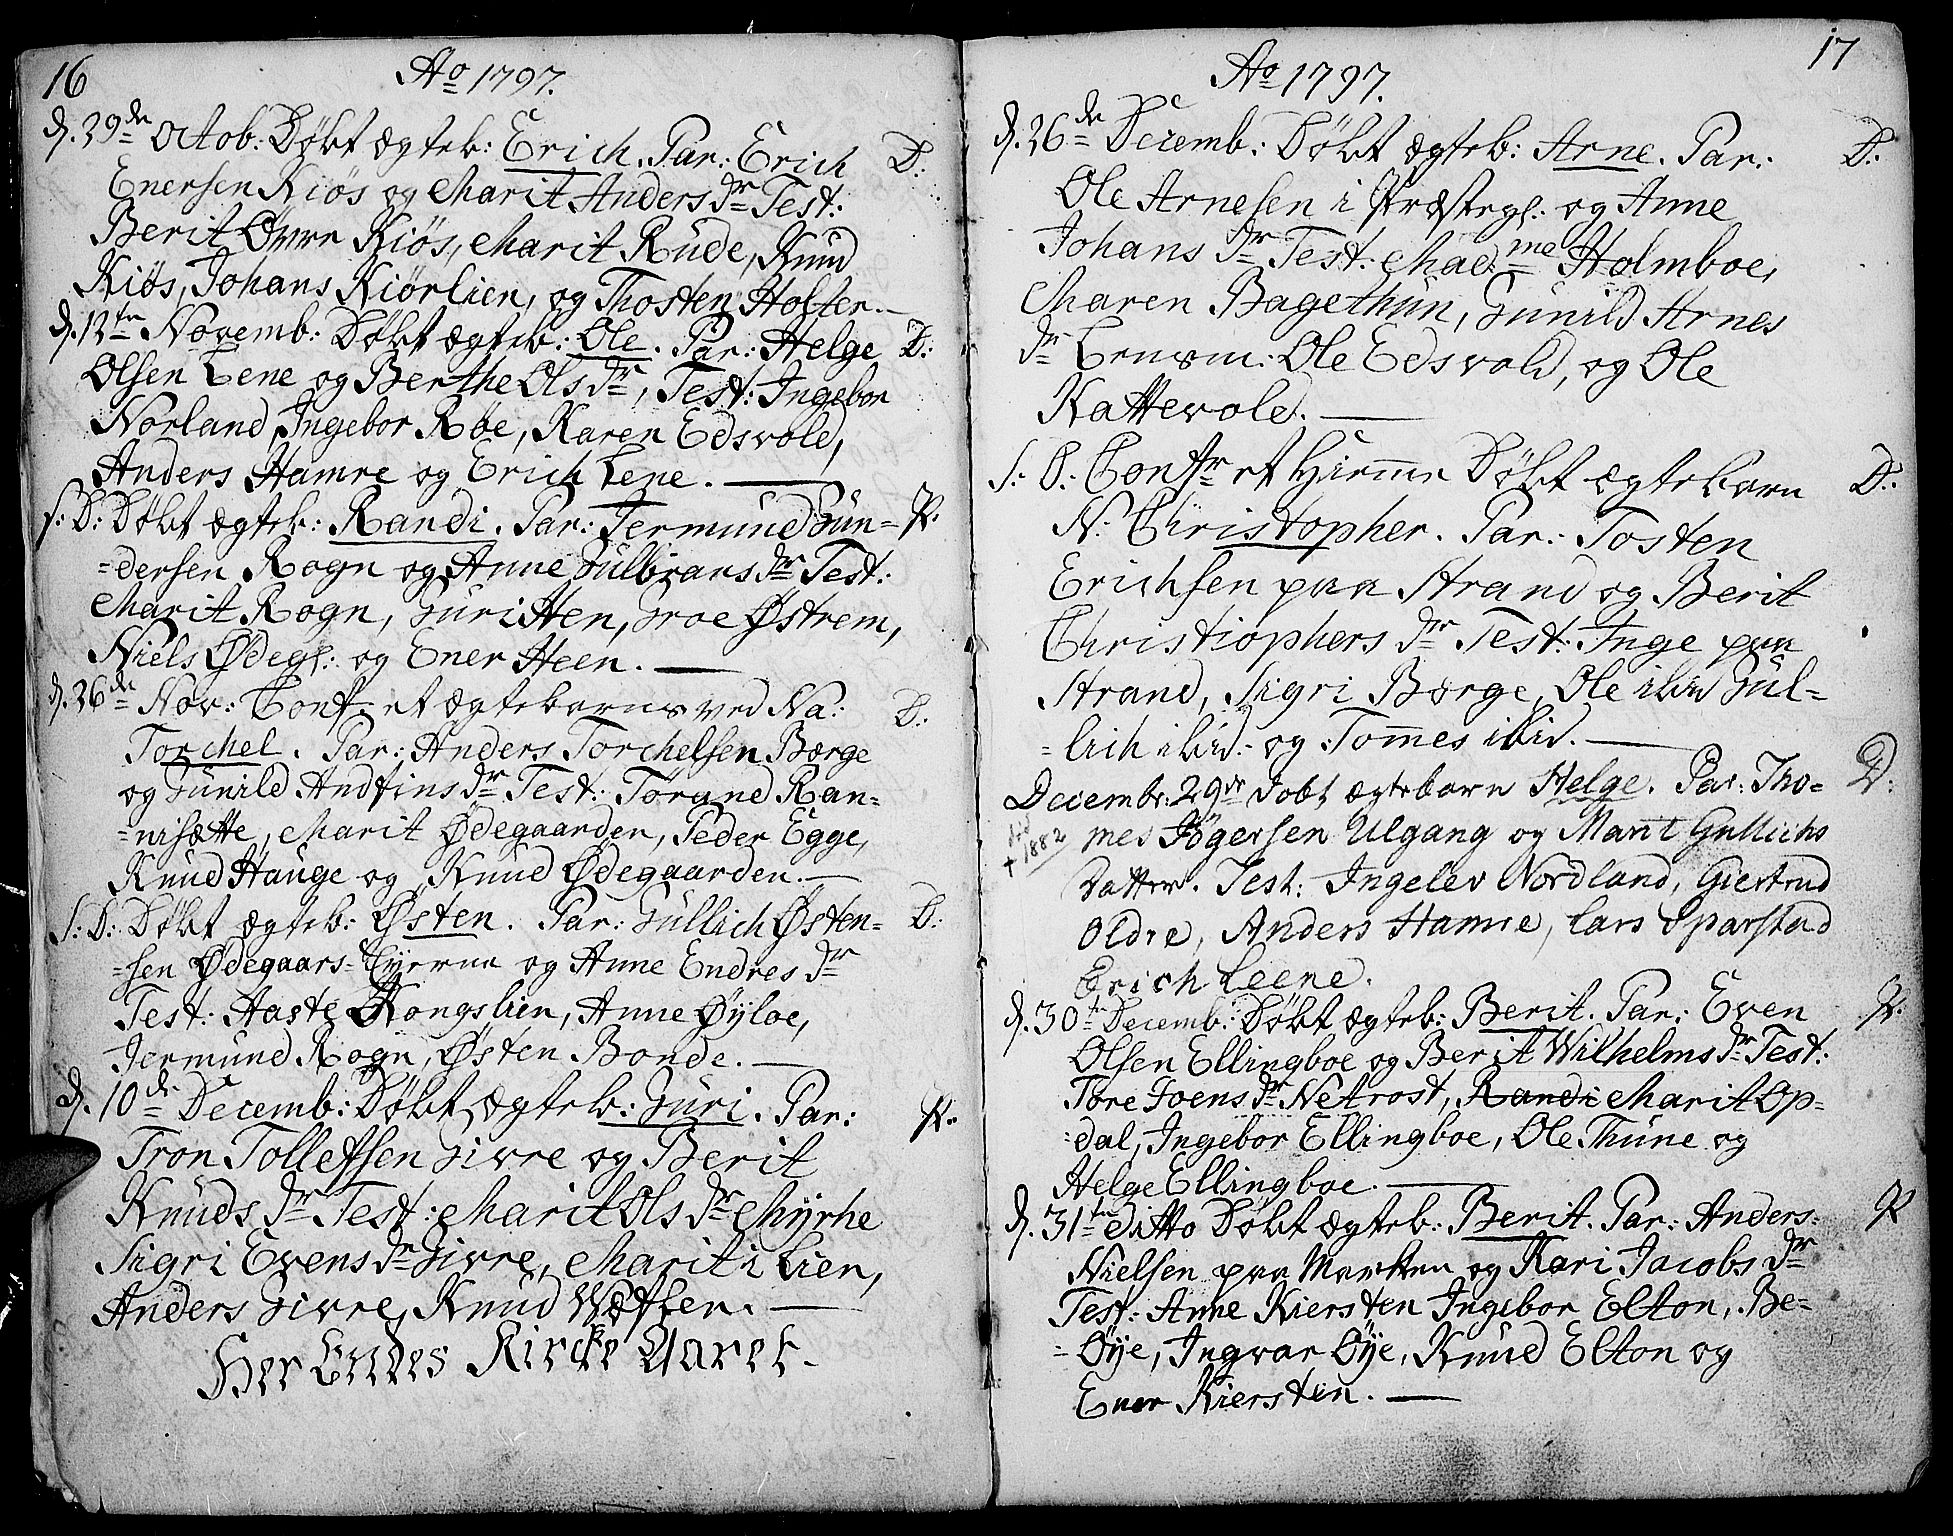 16
Ao 1797.
d. 29de Octob: Døbt ægteb: Erich. Par: Erich D:
Enersen Kiøs og Marit Anders dr Test:
Berit Øvre Kiøs, Marit Rude, Knud
Kiøs, Johans Kiørlien, og Thosten Holter.
d. 12te Novemb: Døbt ægteb: Ole. Par: Helge D:
Olsen Lene og Berthe Ols dr, Test: Ingebor
Norland, Ingebor Røe, Karen Edsvold,
Anders Hamre og Erich Lene.
S: D: Døbt ægteb: Randi. Par: Jermund Gun=
=dersen Rogn og Anne Gulbrans dr Test:
Marit Rogn, Guri Hen, Groe Østrem,
Niels Ødegr: og Ener Heen.
d. 26de Nov: Conf: et ægtebarns ved Na: D:
Torchel. Par: Anders Torchelsen Børge
og Gunild Andfins dr Test: Torand Ran=
=nisætte, Marit Ødegaarden, Peder Egge,
Knud Hauge og Knud Ødegaarden.
S: D: Døbt ægteb: Østen. Par: Gullich Østen= D:
=sen Ødegaars= og Anne Endres dr
Test: Aaste Kongslien, Anne Øyloe,
Jermund Rogn, Østen Bonde.
d. 10de Decemb: Døbt ægteb: Guri. Par:
Tron Tollefsen Givre og Berit
Knuds dr Test: Marit Ols dr Myrhe
Sigri Evens dr Givre, Marit i Lien,
Anders Givre, Knud
Her Endes Kircke Aaret.
17
Ao 1797.
d. 26de Decemb: Døbt ægteb: Arne. Par: D:
Ole Arnesen i Præstegr: og Anne
Johans dr Test: Mad:me Holmboe,
Maren Bagethun, Gunild Arnes
dr Ole Edsvold, og Ole
Kattevold.
S: D: Conf:r et Hiemme Døbt ægtebarn D:
N: Christopher. Par: Tosten
Erichsen paa Strand og Berit
Christiophers dr Test: Inge paa
Strand, Sigri Børge, Ole ibid Gul=
=lich ibid. og Tom̄es ibid.
Decembr: 29de døbt ægtebarn Helge. Par: Tho= D:
mes Ulgang og Marit Gullichs
død † 1882
datter. Test: Ingelev Nordland, Giertrud
Oldre, Anders Hamre, Lars Sparstad
Erich Leene.
d. 30te Decemb: Døbt ægteb: Berit. Par: Even
Olsen Ellingboe og Berit Wilhelms dr Test:
Tore Joens dr Netrost, Randi Marit Op=
=dal, Ingebor Ellingboe, Ole Thune og
Helge Ellingboe.
d. 31te ditto Døbt ægteb: Berit. Par: Anders
Nielsen paa Marken og Kari Jacobs dr
Test: Anne Kiersten Ingebor Elton, Be=
=Øye, Ingvar Øye, Knud Elton og
Ener Kiersten.